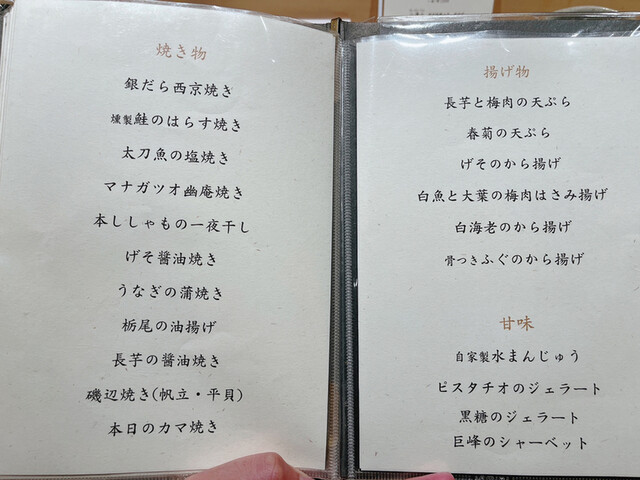 焼き物
銀だら西京焼き
燻製鮭のはらす焼き
太刀魚の塩焼き
マナガツオ幽庵焼き
本ししゃもの一夜干し
げそ醤油焼き
うなぎの蒲焼き
栃尾の油揚げ
長芋の醤油焼き
磯辺焼き(帆立・平貝)
本日のカマ焼き
揚げ物
長芋と梅肉の天ぷら
春菊の天ぷら
げそのから揚げ
白魚と大葉の梅肉はさみ揚げ
白海老のから揚げ
骨つきふぐのから揚げ
甘味
自家製水まんじゅう
ピスタチオのジェラート
黒糖のジェラート
巨峰のシャーベット